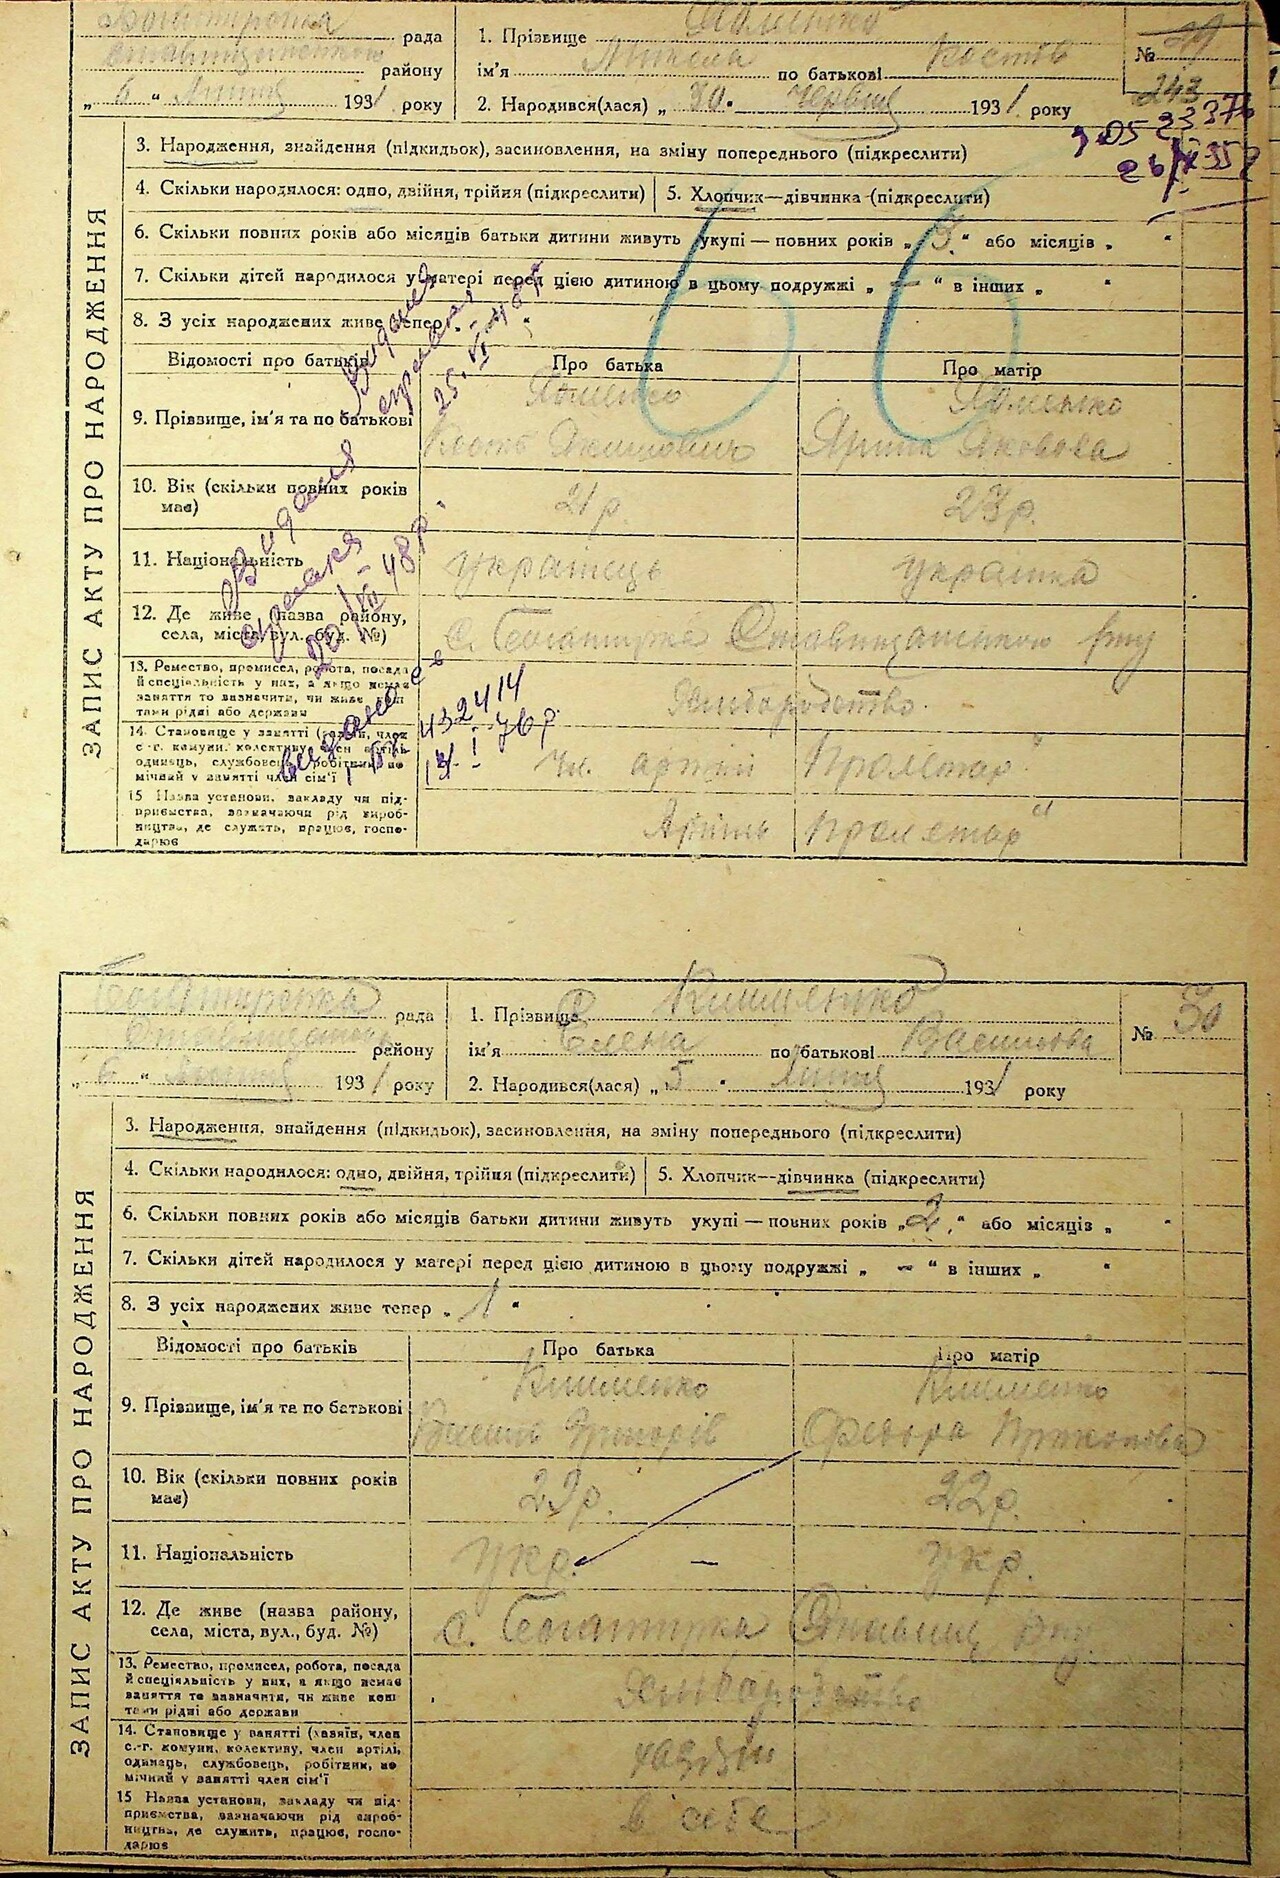 ЗАПИС АКТУ ПРО НАРОДЖЕННЯ
рада
району
„ 6 “ Липця 1931 року
1. Прізвище
ім'я по батькові Костів
2. Народився(лася) „ 30 “ Червця 1931 року
№
243
3. Народження, знайдення (підкидьок), засиновлення, на зміну попереднього (підкреслити)
4. Скільки народилося: одно, двійня, трійня (підкреслити)
5. Хлопчик—дівчинка (підкреслити)
6. Скільки повних років або місяців батьки дитини живуть укупі — повних років „ “ або місяців „ “
7. Скільки дітей народилося у матері перед цією дитиною в цьому подружжі „ — “ в інших „ “
8. З усіх народжених живе тепер „ “
Відомості про батьків
Про батька
Про матір
9. Прізвище, ім'я та по батькові
Кость Якимович
Ярина Яковова
10. Вік (скільки повних років має)
21 р.
23 р.
11. Національність
українець
українка
12. Де живе (назва району, села, міста, вул., буд. №)
с. Богатирка Ставищанського р-ну
13. Ремество, промисел, робота, посада й спеціяльність у них, а якщо немає заняття то зазначити, чи живе коштами рідні або держави
Хліборобство
14. Становище у занятті (хазяїн, член с.-г. комуни, колективу, член артілі, одинець, службовець, робітник, помічний у занятті член сім'ї
чл. артілі „Пролетар“
15 Назва установи, закладу чи підприємства, зазначаючи рід виробництва, де служить, працює, господарює
Артіль „Пролетар“
25. VI 48 р.
Видана
справка
48 р.
видано
432414
I 76 р.
ЗАПИС АКТУ ПРО НАРОДЖЕННЯ
Богатирська рада
району
„ 6 “ Липця 1931 року
1. Прізвище Клименко
ім'я Єлена по батькові Василова
2. Народився(лася) „ 5 “ Липця 1931 року
№ 30
3. Народження, знайдення (підкидьок), засиновлення, на зміну попереднього (підкреслити)
4. Скільки народилося: одно, двійня, трійня (підкреслити)
5. Хлопчик—дівчинка (підкреслити)
6. Скільки повних років або місяців батьки дитини живуть укупі — повних років „ 2 “ або місяців „ “
7. Скільки дітей народилося у матері перед цією дитиною в цьому подружжі „ — “ в інших „ “
8. З усіх народжених живе тепер „ 1 “
Відомості про батьків
Про батька
Про матір
9. Прізвище, ім'я та по батькові
Клименко
Клименко
Василь Григорів
Федора Прокопова
10. Вік (скільки повних років має)
22 р.
11. Національність
укр. —
укр.
12. Де живе (назва району, села, міста, вул., буд. №)
с. Богатирка Ставищ р-ну
13. Ремество, промисел, робота, посада й спеціяльність у них, а якщо немає заняття то зазначити, чи живе коштами рідні або держави
Хліборобство
14. Становище у занятті (хазяїн, член с.-г. комуни, колективу, член артілі, одинець, службовець, робітник, помічний у занятті член сім'ї
хазяїн
15 Назва установи, закладу чи підприємства, зазначаючи рід виробництва, де служить, працює, господарює
в себе